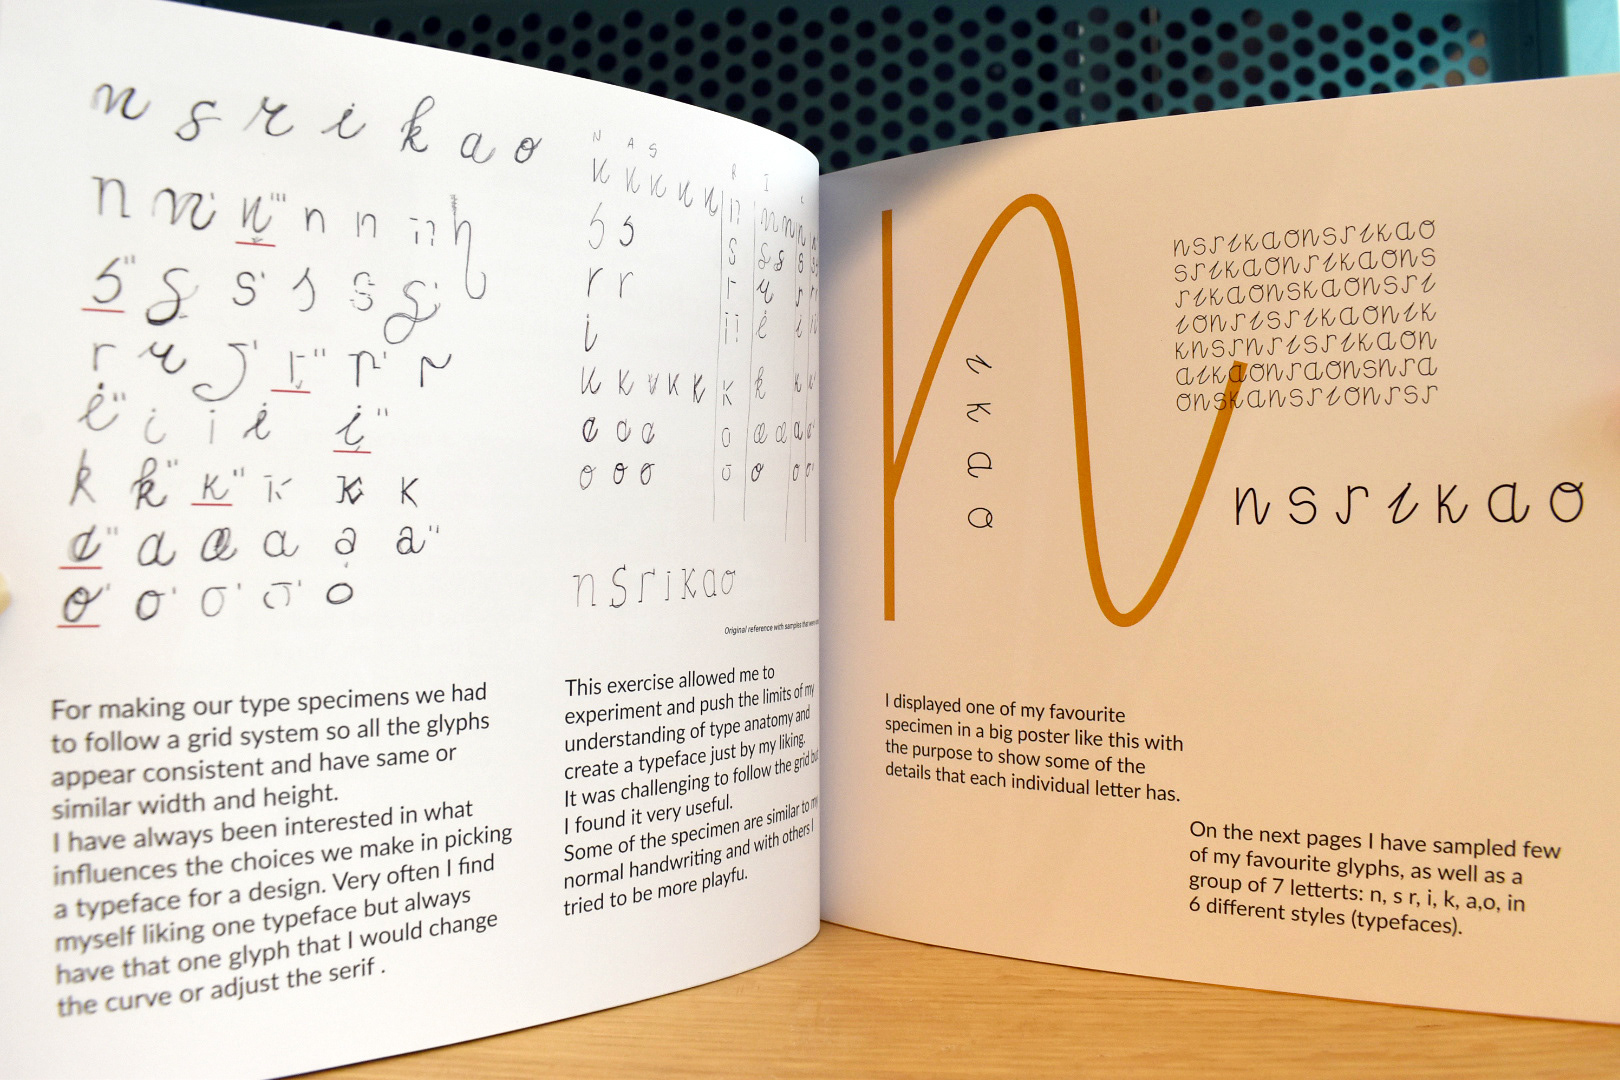 n s r i k a o
n n n n n n n
s s s s s s
r r r r r
i i i i i
k k k k k k
a a a a a a
o o o o o
N A S R I
n s r i k a o
Original reference with samples that
For making our type specimens we had
to follow a grid system so all the glyphs
appear consistent and have same or
similar width and height.
I have always been interested in what
influences the choices we make in picking
a typeface for a design. Very often I find
myself liking one typeface but always
have that one glyph that I would change
the curve or adjust the serif .
This exercise allowed me to
experiment and push the limits of my
understanding of type anatomy and
create a typeface just by my liking.
It was challenging to follow the grid but
I found it very useful.
Some of the specimen are similar to my
normal handwriting and with others I
tried to be more playfu.
n
i k a o
nsrikaonsrikao
srikaonrikaons
rikaonskaonsri
ionrisrikaonik
knsrnrisrikaon
aikaonraonsnra
onskansrionrsr
n s r i k a o
I displayed one of my favourite
specimen in a big poster like this with
the purpose to show some of the
details that each individual letter has.
On the next pages I have sampled few
of my favourite glyphs, as well as a
group of 7 letterts: n, s r, i, k, a,o, in
6 different styles (typefaces).